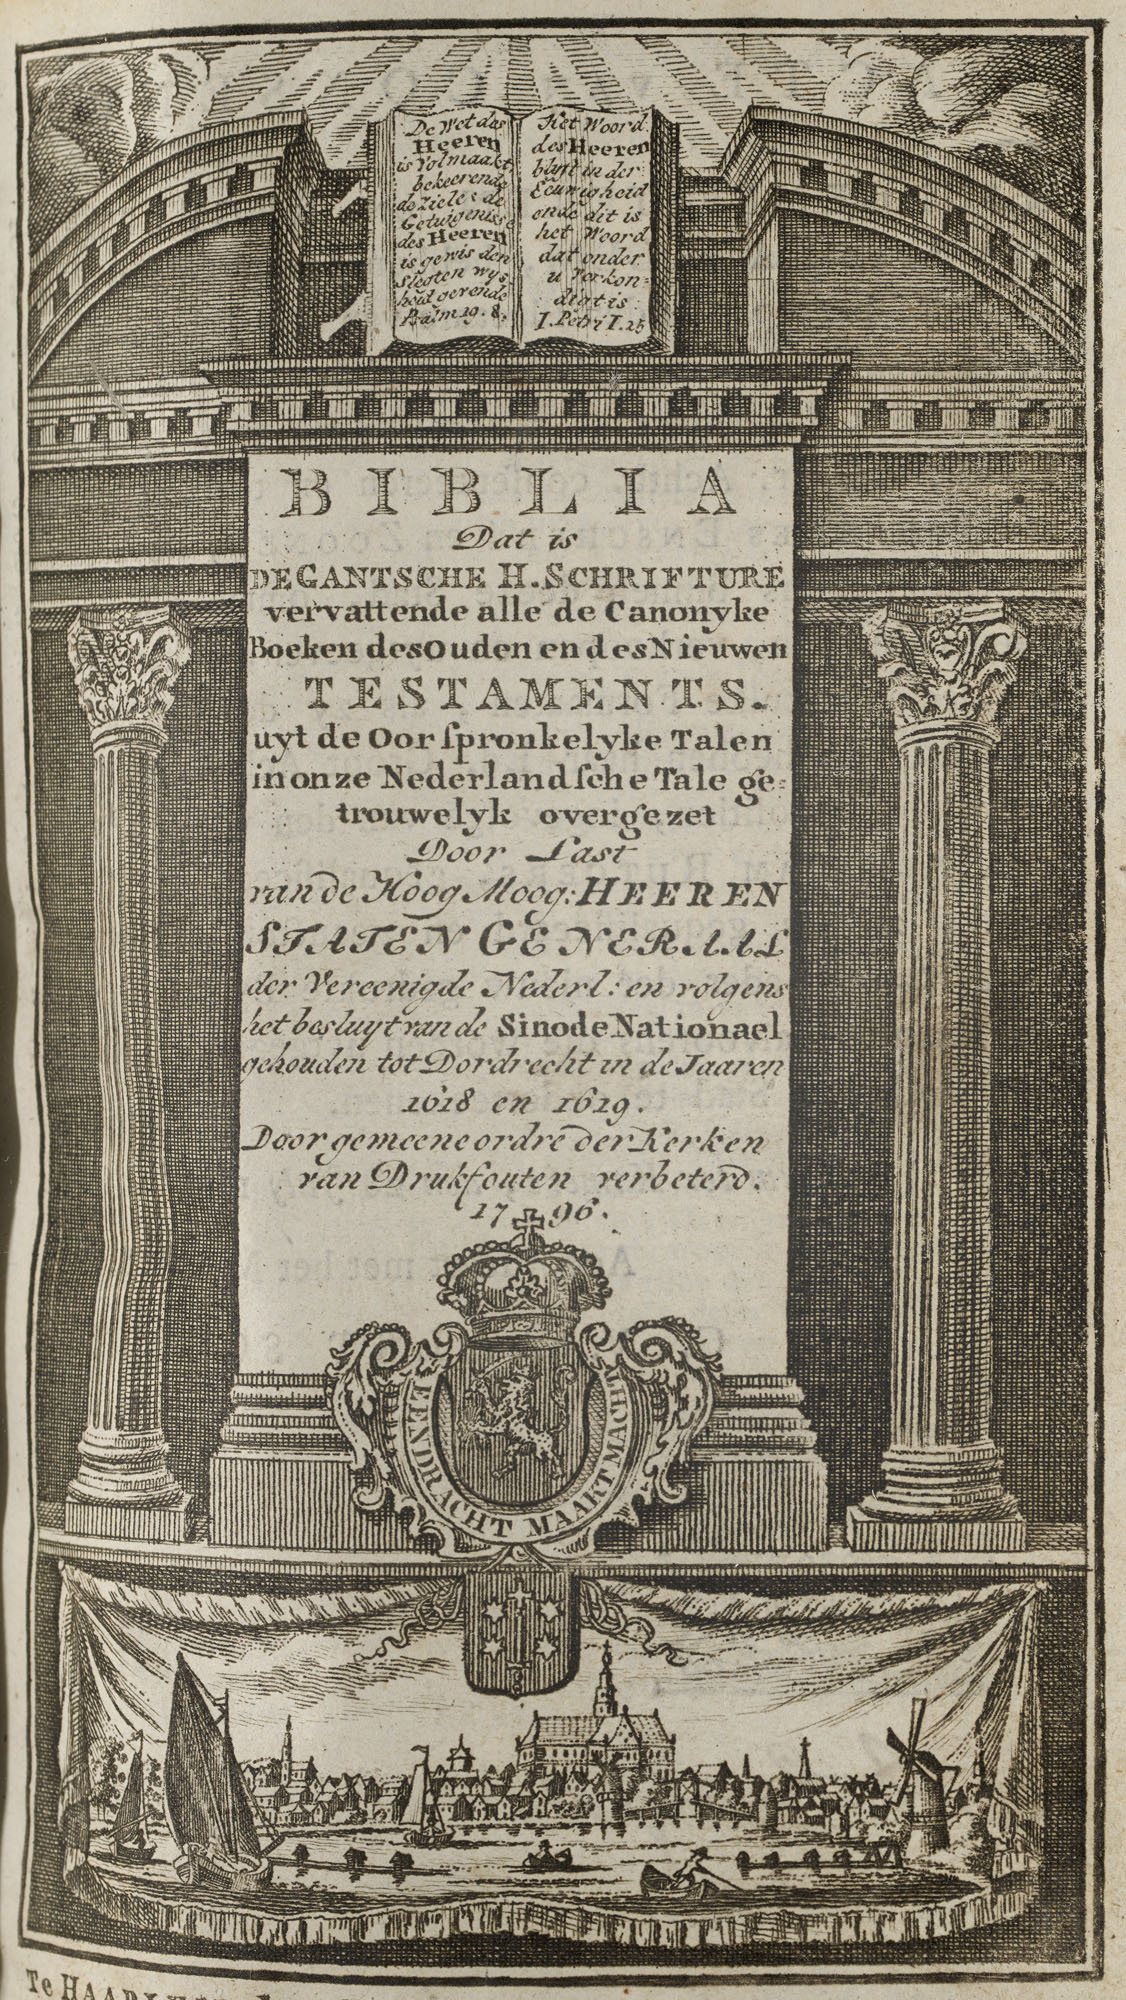 De Wet des
Heeren
is Volmaakt,
bekeerende
de ziele: de
Getuigenisse
des Heeren
is gewis den
Slegten wys
heid gevende
Psalm 19. 8.
Het Woord
des Heeren
blyft in der
Eeuwigheid
ende dit is
het Woord
dat onder
u verkon=
digt is
I. Petri I. 25
BIBLIA
Dat is
DE GANTSCHE H. SCHRIFTURE
vervattende alle de Canonyke
Boeken des Ouden en des Nieuwen
TESTAMENTS.
uyt de Oorſpronkelyke Talen
in onze Nederlandſche Tale ge=
trouwelyk overgezet
Door Last
van de Hoog Moog: HEEREN
STATEN GENERAAL
der Vereenigde Nederl: en volgens
het besluyt van de Sinode Nationael
gehouden tot Dordrecht in de Jaaren
1618 en 1619.
Door gemeene ordre der Kerken
van Drukfouten verbeterd.
1796.
EENDRACHT MAAKT MAGHT
Te HAARLEM